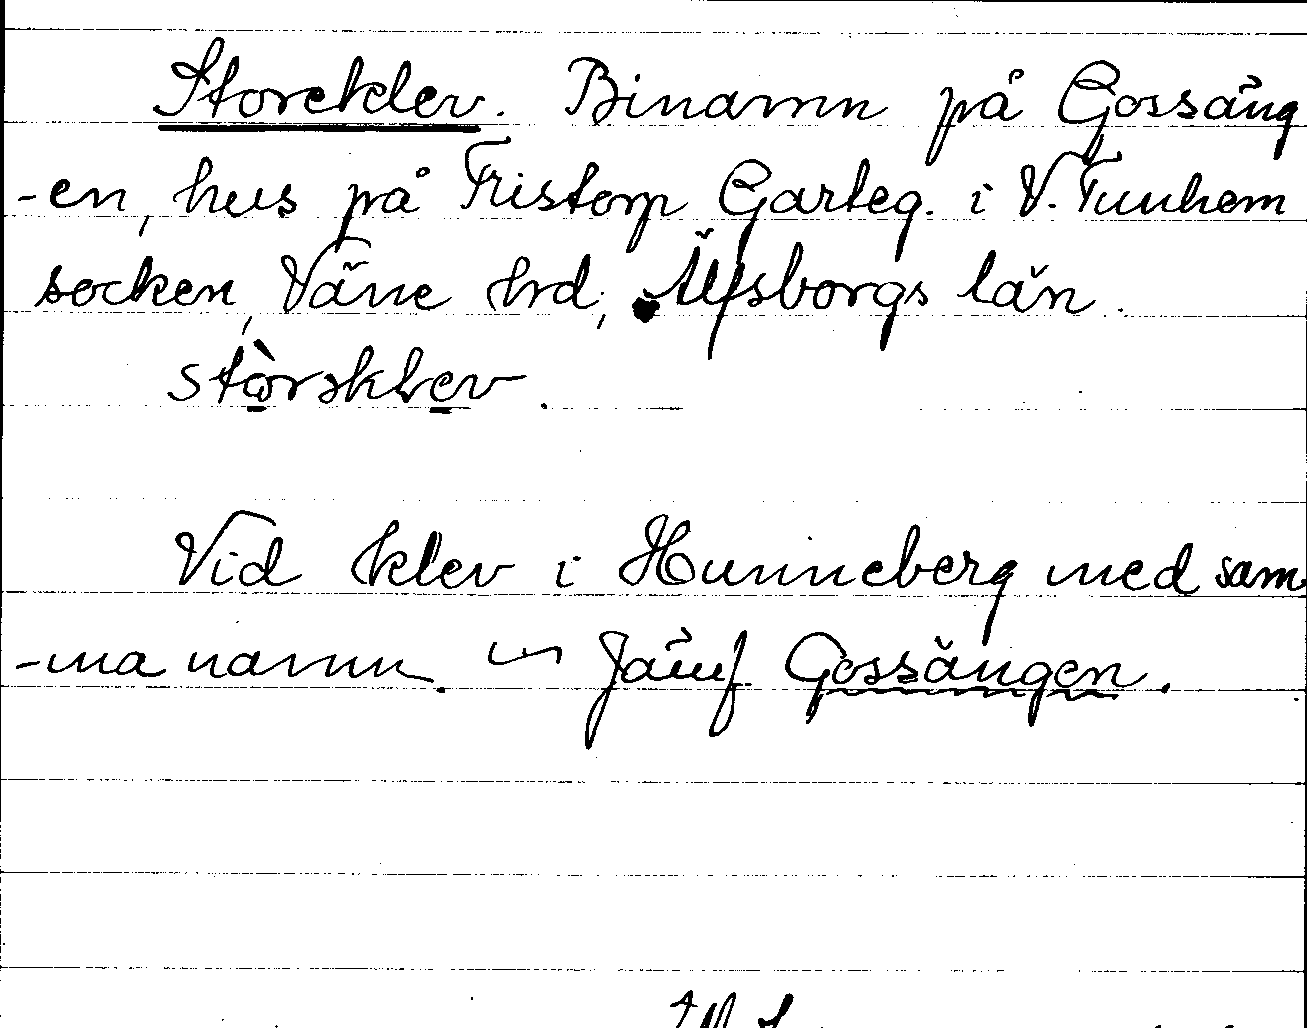 Storeklev. Binamn på Gossäng
-en, hus på Tristorp Garteg. i V. Tunhem
socken, Väne hrd, Älfsborgs län.
stòrsklev.
Vid klev i Hunneberg med sam
-ma namn. Jämf Gossängen.